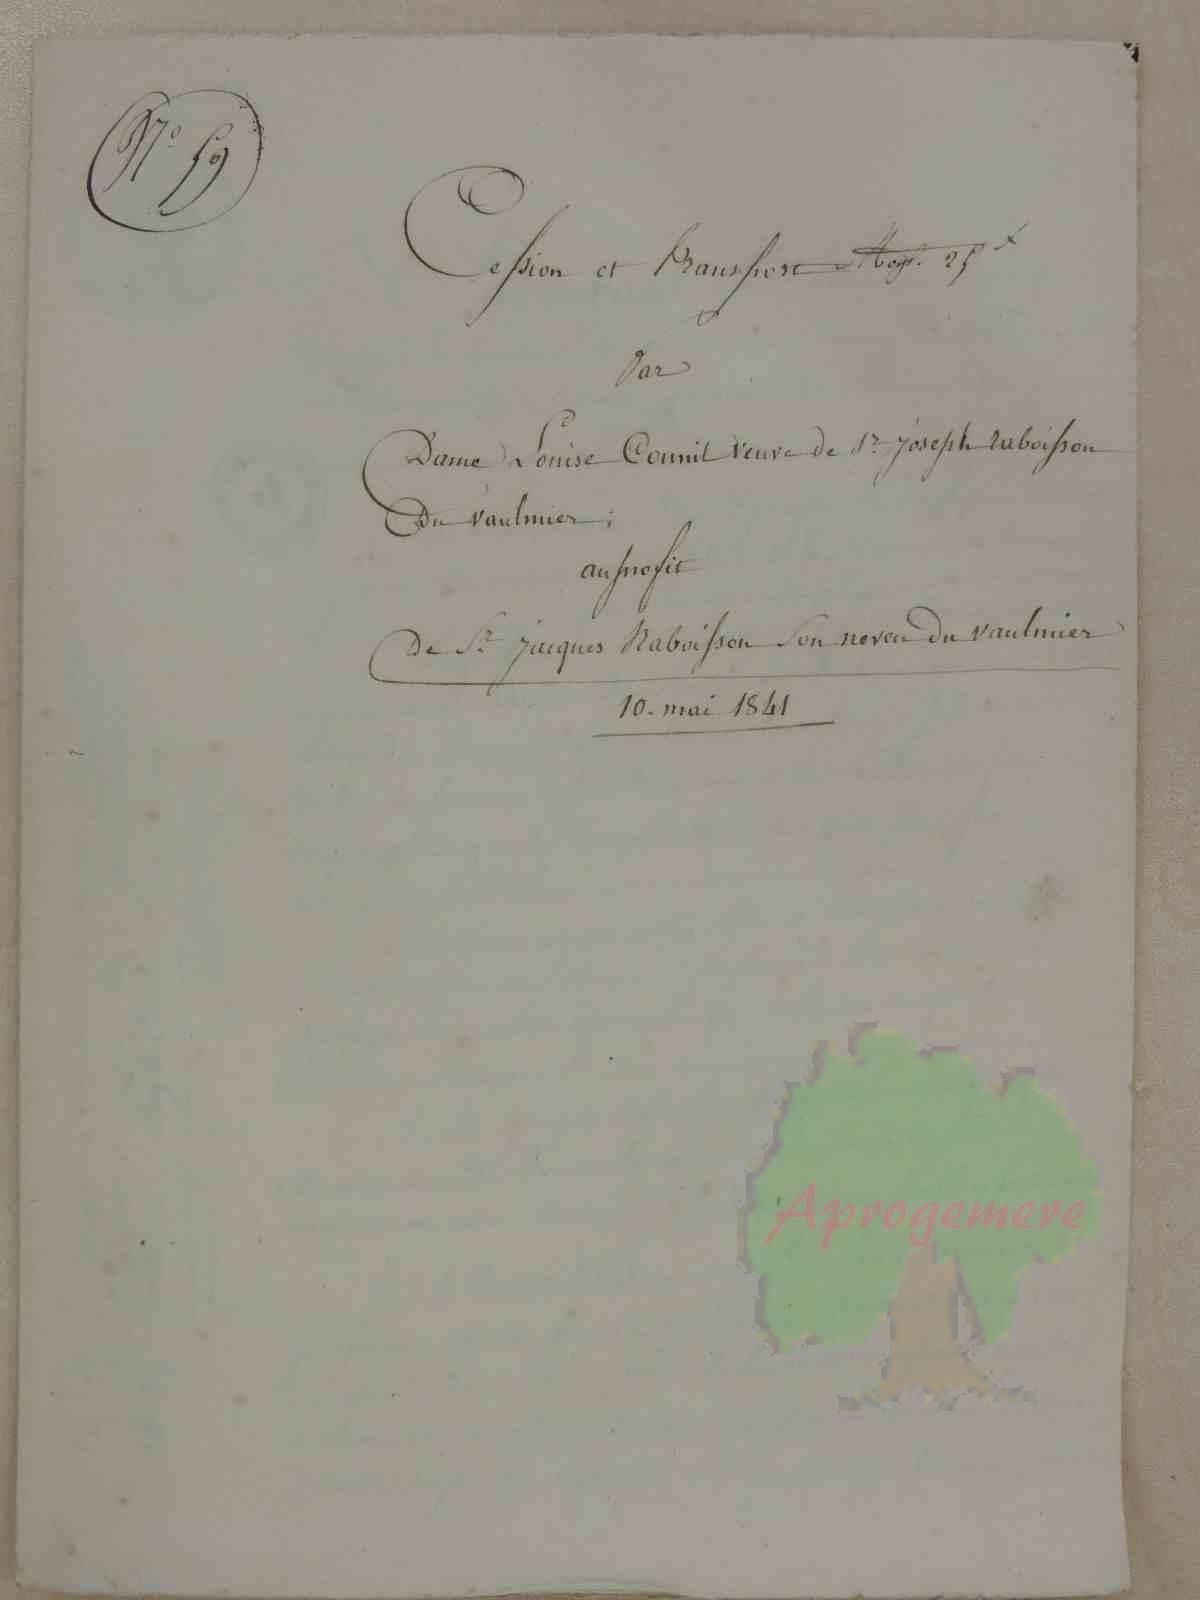 N° 59
Cession et Transport
Par
Dame Louise Counil veuve de Sr. joseph Raboisson
Du vaulmier;
au profit
De Sr. jacques Raboisson Son neveu Du vaulmier
10. mai 1841
Aprogemere